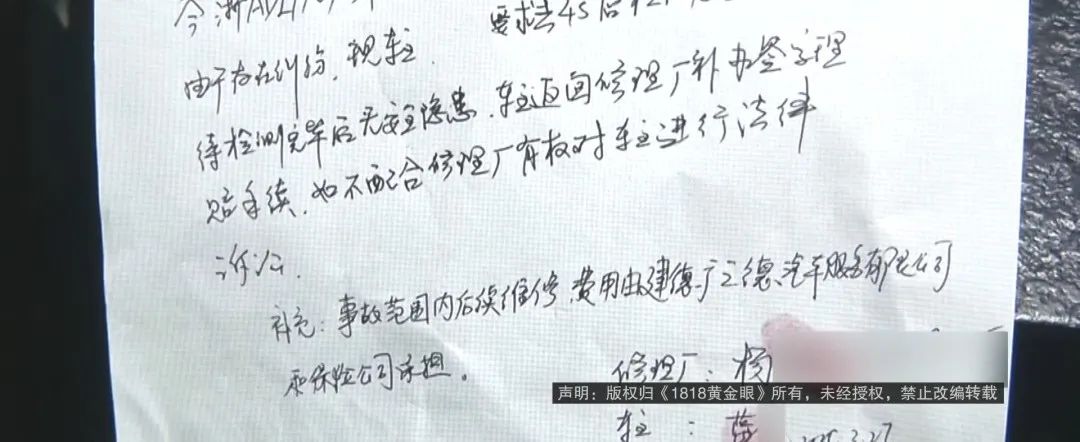 今浙
要求去4S店
由于存在纠纷,现车主
待检测完毕后无安全隐患,车主返回修理厂补办签字理
赔手续,如不配合修理厂有权对车主进行法律
诉讼.
补充:事故范围内后续维修 费用由建德广正德汽车服务有限公司
和保险公司承担.
修理厂:杨
声明:版权归《1818黄金眼》所有,未经授权,禁止改编转载
车主:
3.27